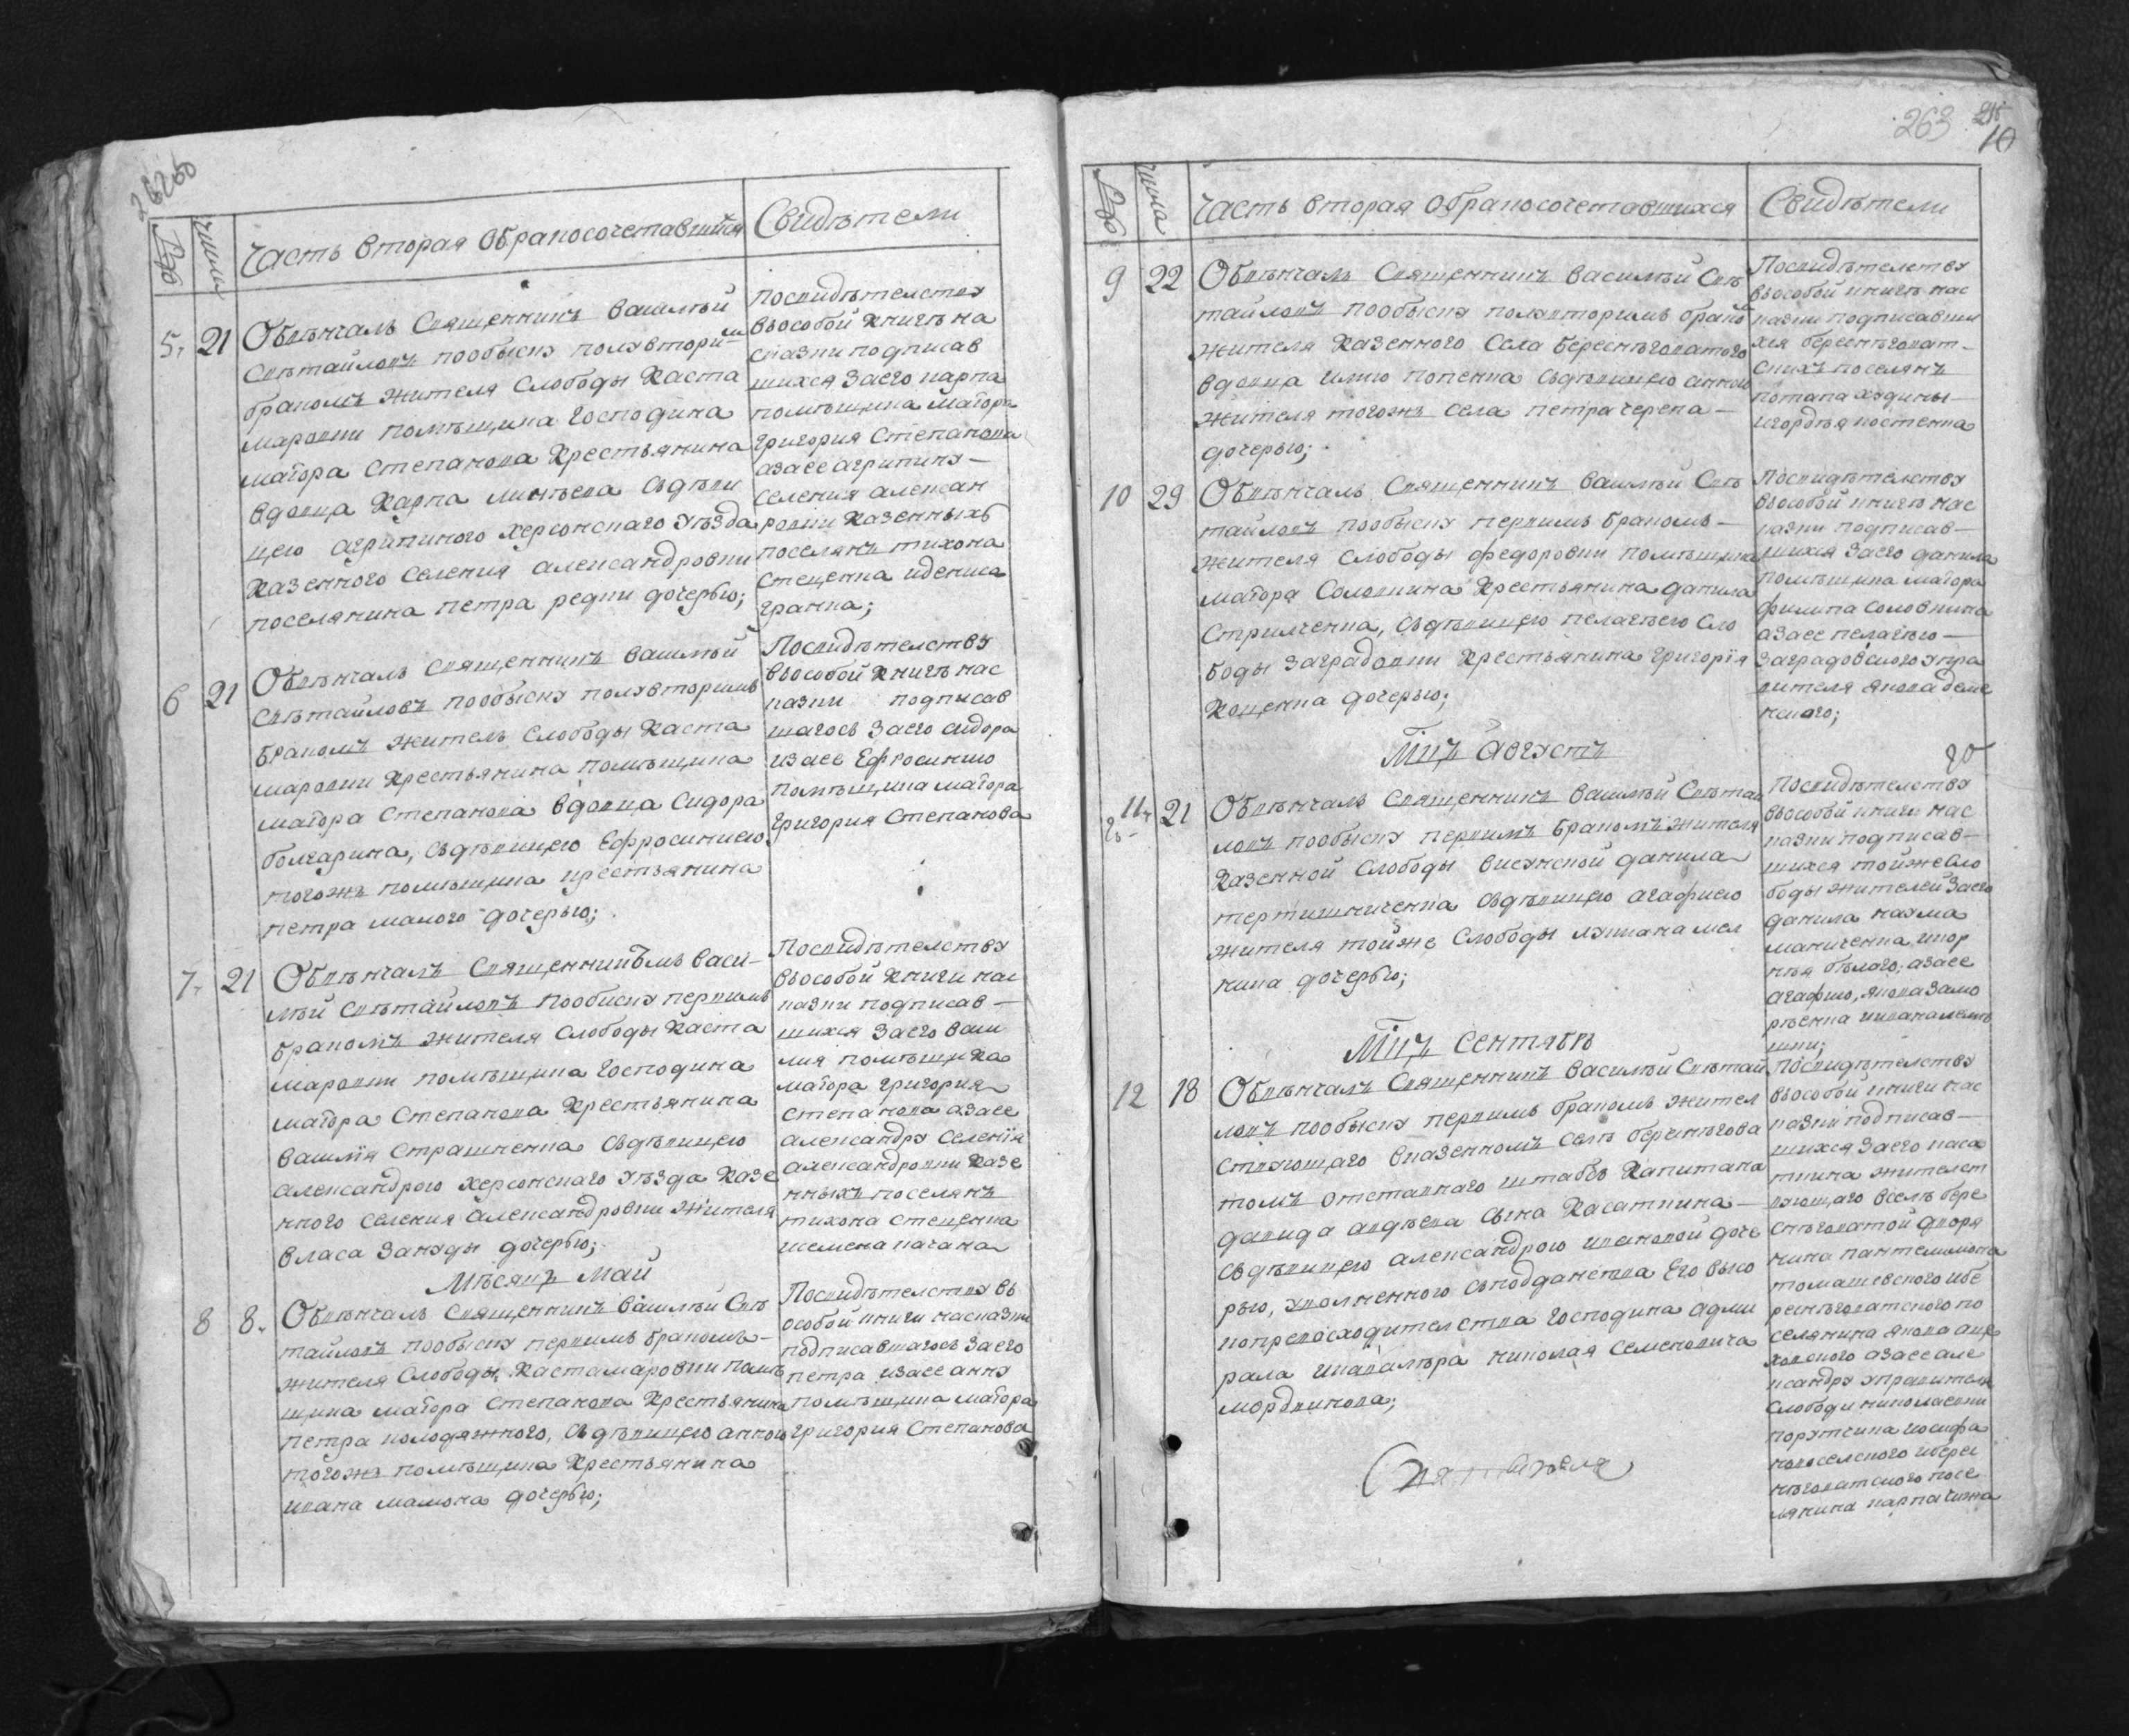 263
10
Число
Часть вторая обракосочетавшихся
Свидѣтели
5
21
Обвѣнчалъ Священникъ Василѣй
Свѣтайловъ пообыску полувторимъ
бракомъ жителя Слободы Каста
маровки помѣщика Господина
маіора Степанова Крестьянина
вдовца Карпа Съдѣви
цею агрипиного херсонскаго Уѣзда
Казенного Селения александровки
поселянина петра редки дочерью;
Посвидѣтелству
въособой Книгѣ на
сказки подписав
шихся Заего карпа
помѣщика Маіора
григория Степанова
азаее агрипину
Селения алексан
ровки Казенныхъ
поселянъ тихона
Стеценка идениса
гранка;
6
21
Обвѣнчалъ Священникъ Василѣй
Свѣтайловъ пообыску полувторимъ
бракомъ жителъ Слободы Каста
маровки Крестьянина помѣщика
маіора Степанова Вдовца Сидора
болгарина, Съдѣвицею Ефросиниею
тогожъ помѣщика крестьянина
петра малого дочерью;
Посвидѣтелству
въособой Книгѣ нас
казки подписав
шагось Заего сидора
изаее Ефросинию
помѣщика маіора
григория Степанова
7
21
Обвѣнчалъ Священникъ васи
лѣй Свѣтайловъ пообиску первимъ
бракомъ жителя Слободы Каста
маровки помѣщика Господина
маіора Степанова Крестьянина
василія Страшненка Съдѣвицею
александрою херсонскаго Уѣзда Казе
нного Селения александровки жителя
власа Занузды дочерью;
Посвидѣтелству
въособой Книги нас
казки подписав
шихся Заего васи
лия помѣщика
маіора григория
Степанова азаее
александру Селенія
александровки Казе
нныхъ поселянъ
тихона Стеценка
исемена качана
Мѣсяцъ Май
8
8
Обвѣнчалъ Священникъ василѣй Свѣ
тайловъ пообыску первимъ бракомъ
жителя Слободы Кастамаровки помѣ
щика маіора Степанова Крестьянина
петра колодяжного, Съдѣвицею анною
тогожъ помѣщика Крестьянина
ивана мамона дочерью;
Посвидѣтелству въ
особой книги насказки
подписавшагось Заего
петра изаее анну
помѣщика маіора
григория Степанова
Число
Часть вторая обракосочетавшихся
Свидѣтели
9
22
Обвѣнчалъ Священникъ василѣй Свѣ
тайловъ пообыску полувторимъ бракомъ
жителя Казенного Села береснѣговатого
вдовца илию попенка Съдѣвицею анною
жителя тогожъ села петра черепа
дочерью;
Посвидѣтелству
въособой книгѣ нас
казки подписавши
хся береснѣговат
скихъ поселянъ
потапа худины
игордѣя костенка
10
29
Обвѣнчалъ Священникъ василѣй Свѣ
тайловъ пообыску первимъ бракомъ
жителя Слободы федоровки помѣщика
маіора Соловкина Крестьянина данила
Стрилченка, Съдѣвицею пелагѣею Сло
боды Заградовки Крестьянина григорія
Коценка дочерью;
Посвидѣтелству
въособой книгѣ нас
казки подписав
шихся Заего данила
помѣщика маіора
филипа Соловкина
азаее пелагѣю
Заградовского упра
вителя якова
Мцъ августъ
11
21
Обвѣнчалъ Священникъ василѣй Свѣтай
ловъ пообыску первимъ бракомъ жителя
Казенной Слободы висунской данила
тертишниченка Съдѣвицею агафиею
жителя тойже Слободы лукиана мел
ника дочерью;
Посвидѣтелству
въособой книги нас
казки подписав
шихся тойже Сло
боды жителей Заего
данила наума
маниченка, икор
нѣя бѣлаго; азаее
агафию, якова
Мцъ Сентябръ
12
18
Обвѣнчалъ Священникъ василѣй Свѣтай
ловъ пообыску первимъ бракомъ жител
ствующаго вказенномъ Селѣ береснѣгова
томъ отставнаго штабсъ Капитана
давида авдѣева Сына Касаткина
Съдѣвицею александрою ивановой доче
рью, уволненного съподданства Его высо
копревосходителства Господина адми
рала икавалѣра николая Семеновича
мордвинова;
Посвидѣтелству
въособой книги нас
казки подписав
шихся Заего каса
ткина жителст
вующаго вселѣ бере
снѣговатой дворя
нина пантелимона
томашевского ибе
реснѣговатского по
селянина якова
азаее але
ксандру управителя
Слободи николаевки
поручика иосифа
новоселского ибере
снѣговатского посе
лянина карпа